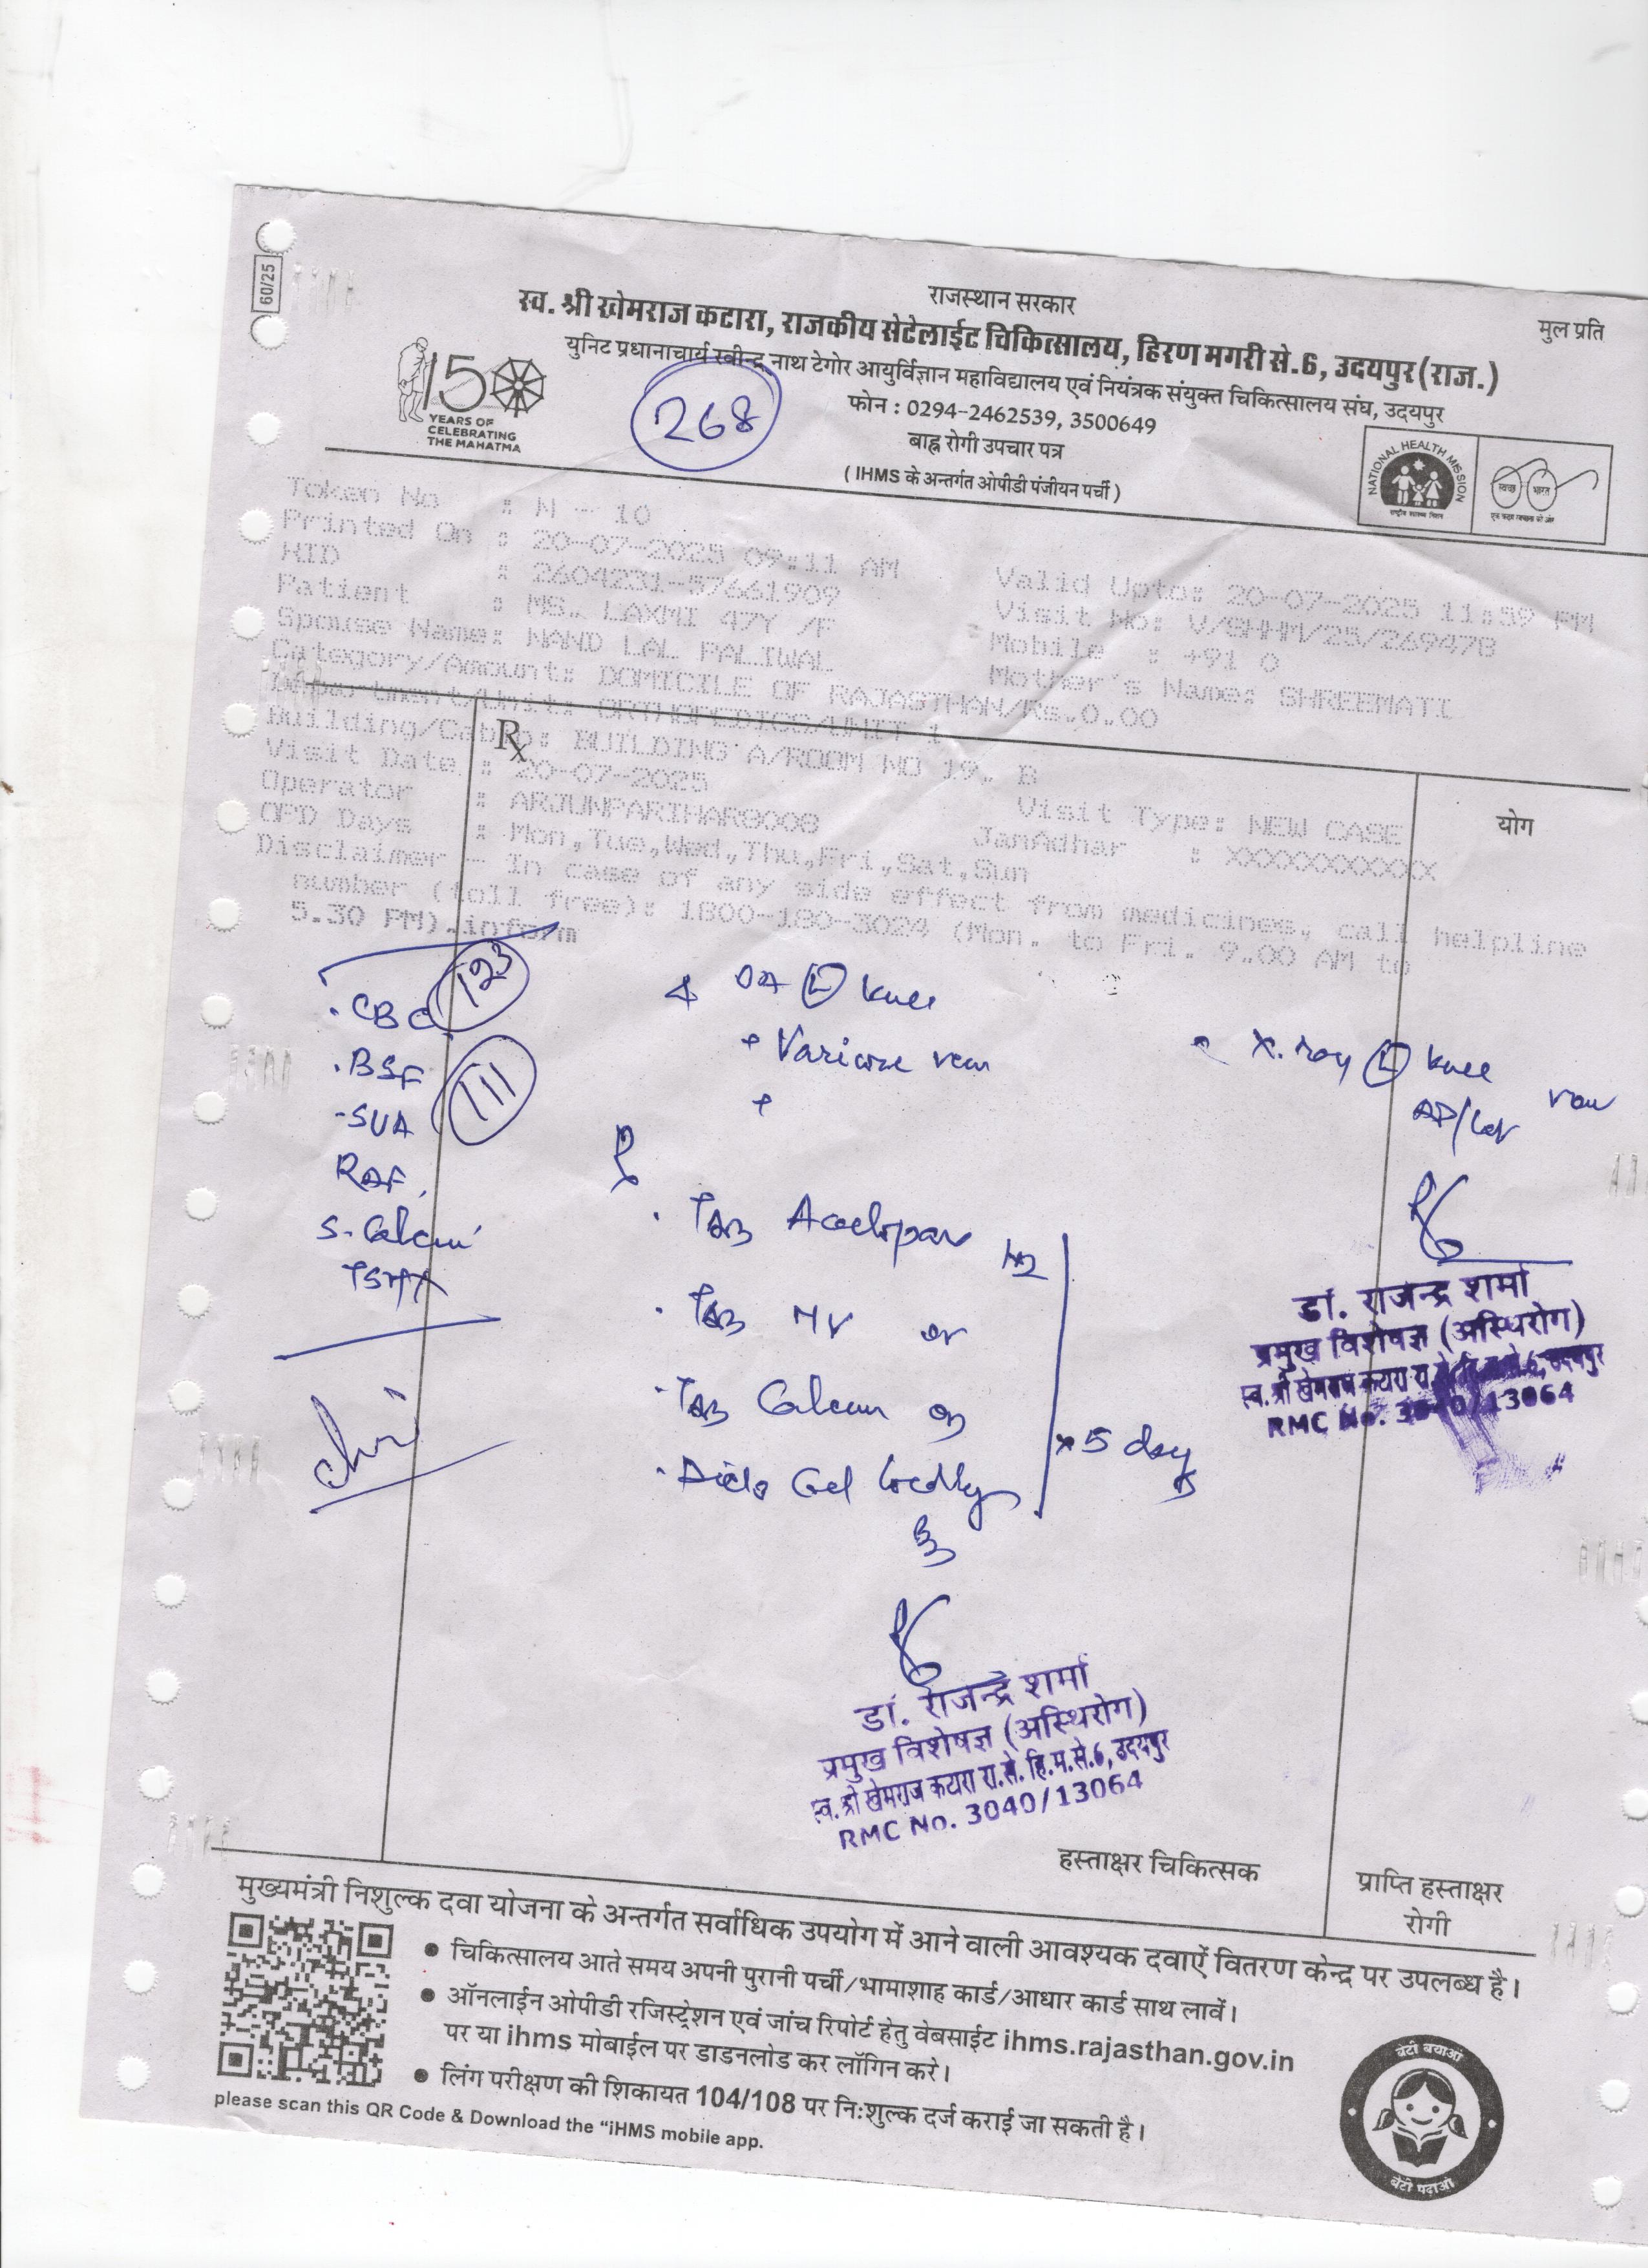 60/25
राजस्थान सरकार
मुल प्रति
स्व. श्री खेमराज कटारा, राजकीय सेटेलाईट चिकित्सालय, हिरण मगरी से.6, उदयपुर (राज.)
युनिट प्रधानाचार्य रवीन्द्र नाथ टेगोर आयुर्विज्ञान महाविद्यालय एवं नियंत्रक संयुक्त चिकित्सालय संघ, उदयपुर
फोन : 0294-2462539, 3500649
बाह्र रोगी उपचार पत्र
( IHMS के अन्तर्गत ओपीडी पंजीयन पर्ची )
150
YEARS OF
CELEBRATING
THE MAHATMA
268
NATIONAL HEALTH MISSION
राष्ट्रीय स्वास्थ्य मिशन
स्वच्छ भारत
एक कदम स्वच्छता की ओर
Token No : N - 10
Printed On : 20-07-2025 09:11 AM
HID : 2604231-57661909
Valid Upto: 20-07-2025 11:59 PM
Patient : MS. LAXMI 47Y /F
Visit No: V/SHHM/25/269478
Spouse Name: NAND LAL PALIWAL
Mobile : +91 0
Category/Amount: DOMICILE OF RAJASTHAN/Rs.0.00
Mother's Name: SHREEMATI
Department/Unit: ORTHOPEDICS/UNIT 1
Building/Cabin: BUILDING A/ROOM NO 19. B
Visit Date : 20-07-2025
Operator : ARJUNPARIHAR8008
Visit Type: NEW CASE
OPD Days : Mon,Tue,Wed,Thu,Fri,Sat,Sun
JanAdhar : XXXXXXXXXXX
Disclaimer - In case of any side effect from medicines, call helpline
number (toll free): 1800-180-3024 (Mon. to Fri. 9.00 AM to
5.30 PM).inform
Rx
योग
CBC 123
BSF 111
SUA
RAF
S. Calcium
TSH
OA L knee
+ Varicose vein
+
X.ray L knee
AP/Lat view
Tab
Tab MV
Tab Calcium
Diclo Gel locally
x 5 days
डॉ. राजेन्द्र शर्मा
प्रमुख विशेषज्ञ (अस्थिरोग)
RMC No. 3040/13064
डॉ. राजेन्द्र शर्मा
प्रमुख विशेषज्ञ (अस्थिरोग)
स्व. श्री खेमराज कटारा रा.से. हि.म.से.6, उदयपुर
RMC No. 3040/13064
हस्ताक्षर चिकित्सक
प्राप्ति हस्ताक्षर
रोगी
मुख्यमंत्री निशुल्क दवा योजना के अन्तर्गत सर्वाधिक उपयोग में आने वाली आवश्यक दवाऐं वितरण केन्द्र पर उपलब्ध है।
• चिकित्सालय आते समय अपनी पुरानी पर्ची/भामाशाह कार्ड/आधार कार्ड साथ लावें।
• ऑनलाईन ओपीडी रजिस्ट्रेशन एवं जांच रिपोर्ट हेतु वेबसाईट ihms.rajasthan.gov.in
पर या ihms मोबाईल पर डाडनलोड कर लॉगिन करे।
• लिंग परीक्षण की शिकायत 104/108 पर नि:शुल्क दर्ज कराई जा सकती है।
please scan this QR Code & Download the “iHMS mobile app.
बेटी बचाओ
बेटी पढ़ाओ